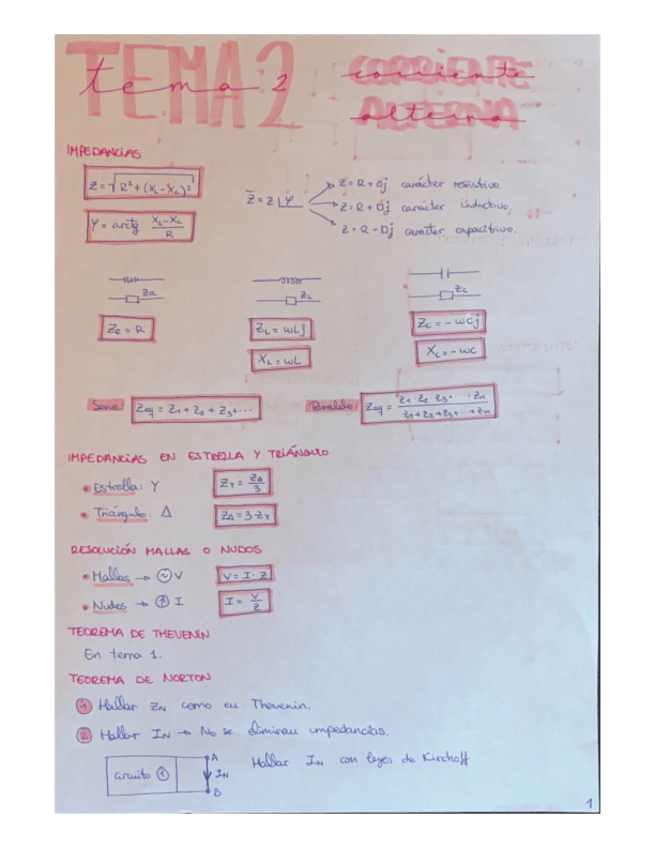 TEMA 2
tema 2
CORRIENTE
corriente
ALTERNA
alterna
IMPEDANCIAS
Z = √R² + (XL - XC)²
φ = arctg XL - XC / R
Z̄ = Z ∟φ
Z = R + 0j carácter resistivo.
Z = R + Dj carácter inductivo.
Z = R - Dj carácter capacitivo.
ZR
ZL
ZC
ZR = R
ZL = wLj
ZC = - wCj
XL = wL
XC = - wC
Serie: Zeq = Z1 + Z2 + Z3 + ...
Paralelo: Zeq = Z1 · Z2 · Z3 · ... · Zn / Z1 + Z2 + Z3 + ... + Zn
IMPEDANCIAS EN ESTRELLA Y TRIÁNGULO
• Estrella: Y ZY = ZΔ / 3
• Triángulo: Δ ZΔ = 3 · ZY
RESOLUCIÓN MALLAS O NUDOS
• Mallas → V V = I · Z
• Nudos → I I = V / Z
TEOREMA DE THEVENIN
En tema 1.
TEOREMA DE NORTON
1 Hallar ZN como en Thevenin.
2 Hallar IN → No se eliminan impedancias.
circuito 1
A
IN
B
Hallar IN con leyes de Kirchoff
1